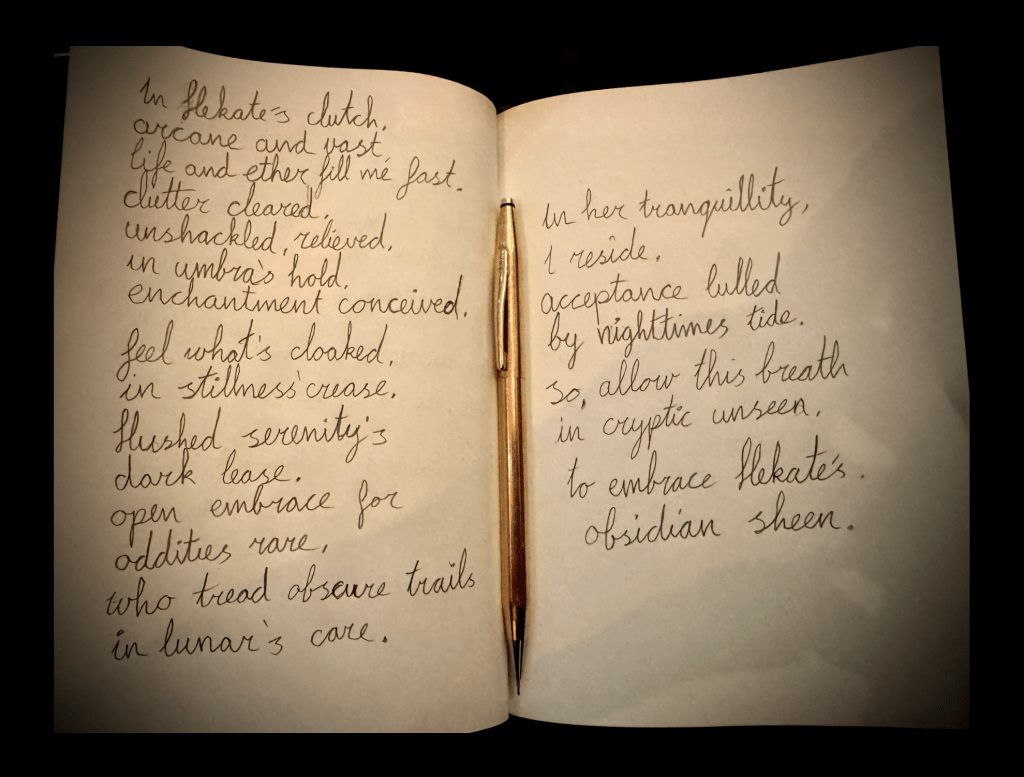 In Hekate's clutch,
arcane and vast,
life and ether fill me fast.
clutter cleared,
unshackled, relieved,
in umbra's hold,
enchantment conceived.
feel what's cloaked,
in stillness' crease,
Hushed serenity's
dark lease.
open embrace for
oddities rare,
who tread obscure trails
in lunar's care.
In her tranquillity,
I reside.
acceptance lulled
by nighttimes tide.
so, allow this breath
in cryptic unseen,
to embrace Hekate's.
obsidian sheen.